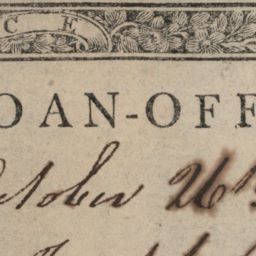 C E
OAN-OFF
October 26